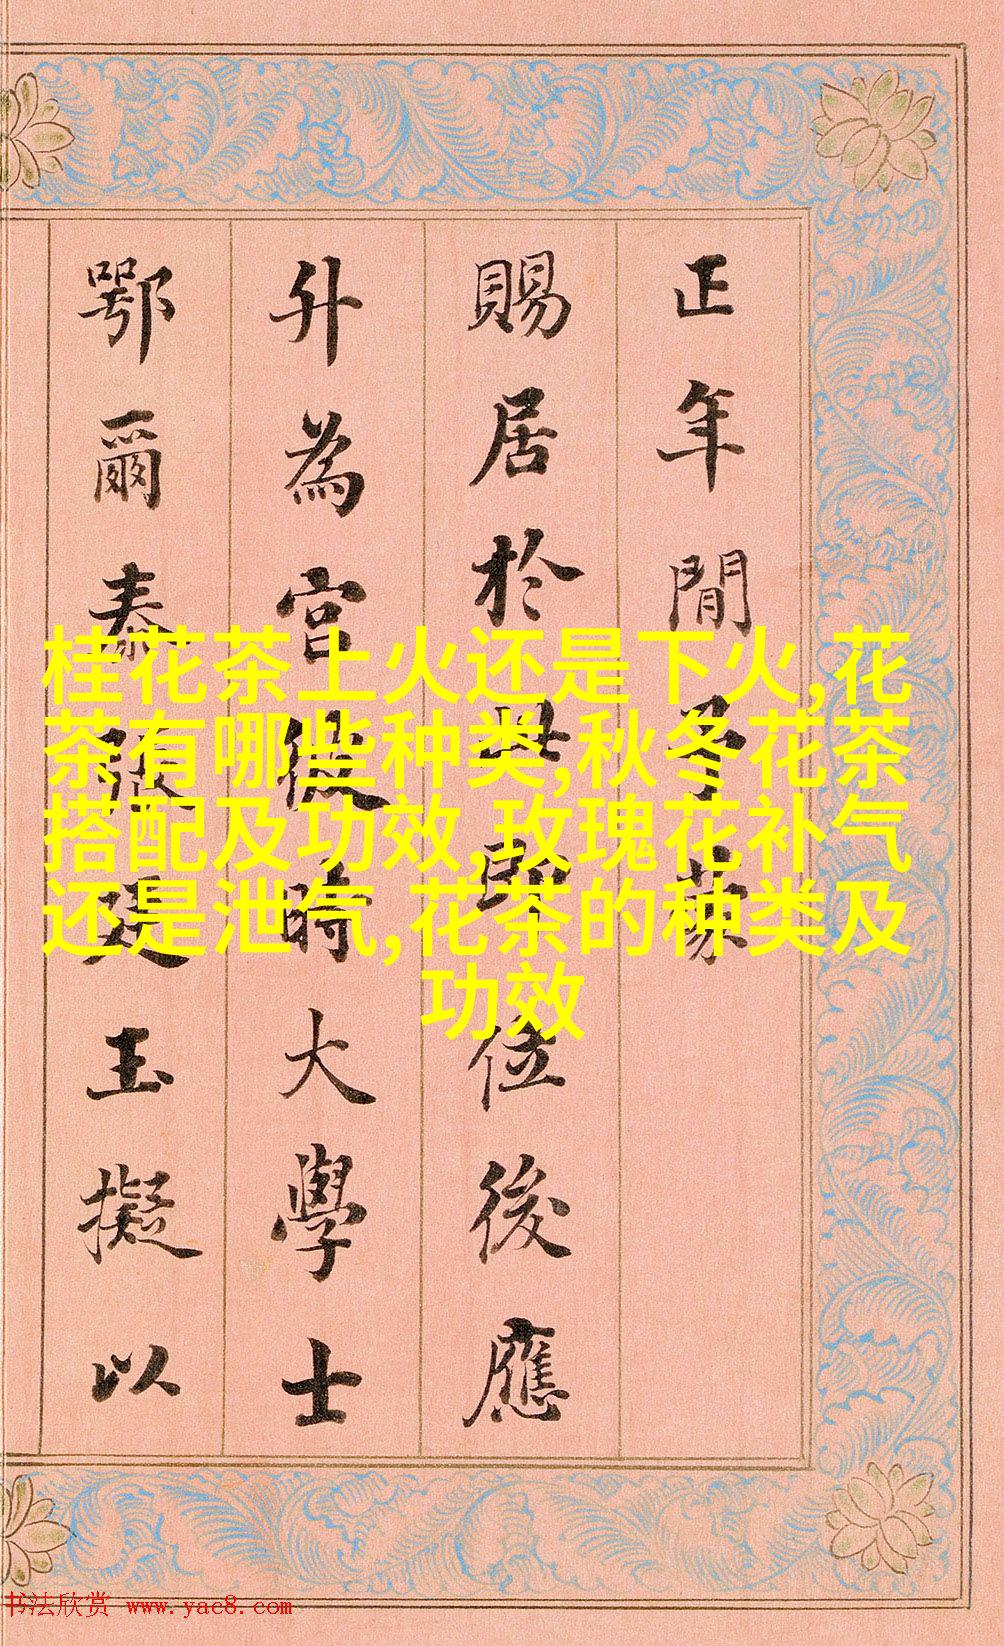 正年間予蒙
賜居於此即位後應
升為宮時大學士
鄂爾泰張廷玉擬以
桂花茶上火还是下火,花
茶有哪些种类,秋冬花茶
搭配及功效,玫瑰花补气
还是泄气,花茶的种类及
功效
书法欣赏 www.yac8.com